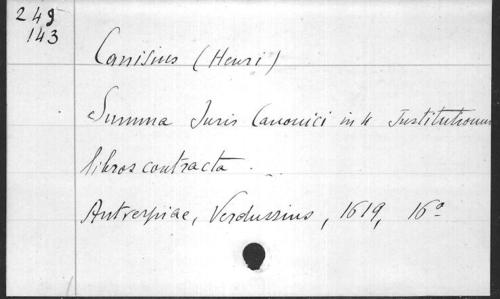 249
143
Canisius (Henri)
Summa Juris Canonici in 4 Institutionum
libros contracta.
Antverpiae, Verdussius, 1619, 16º